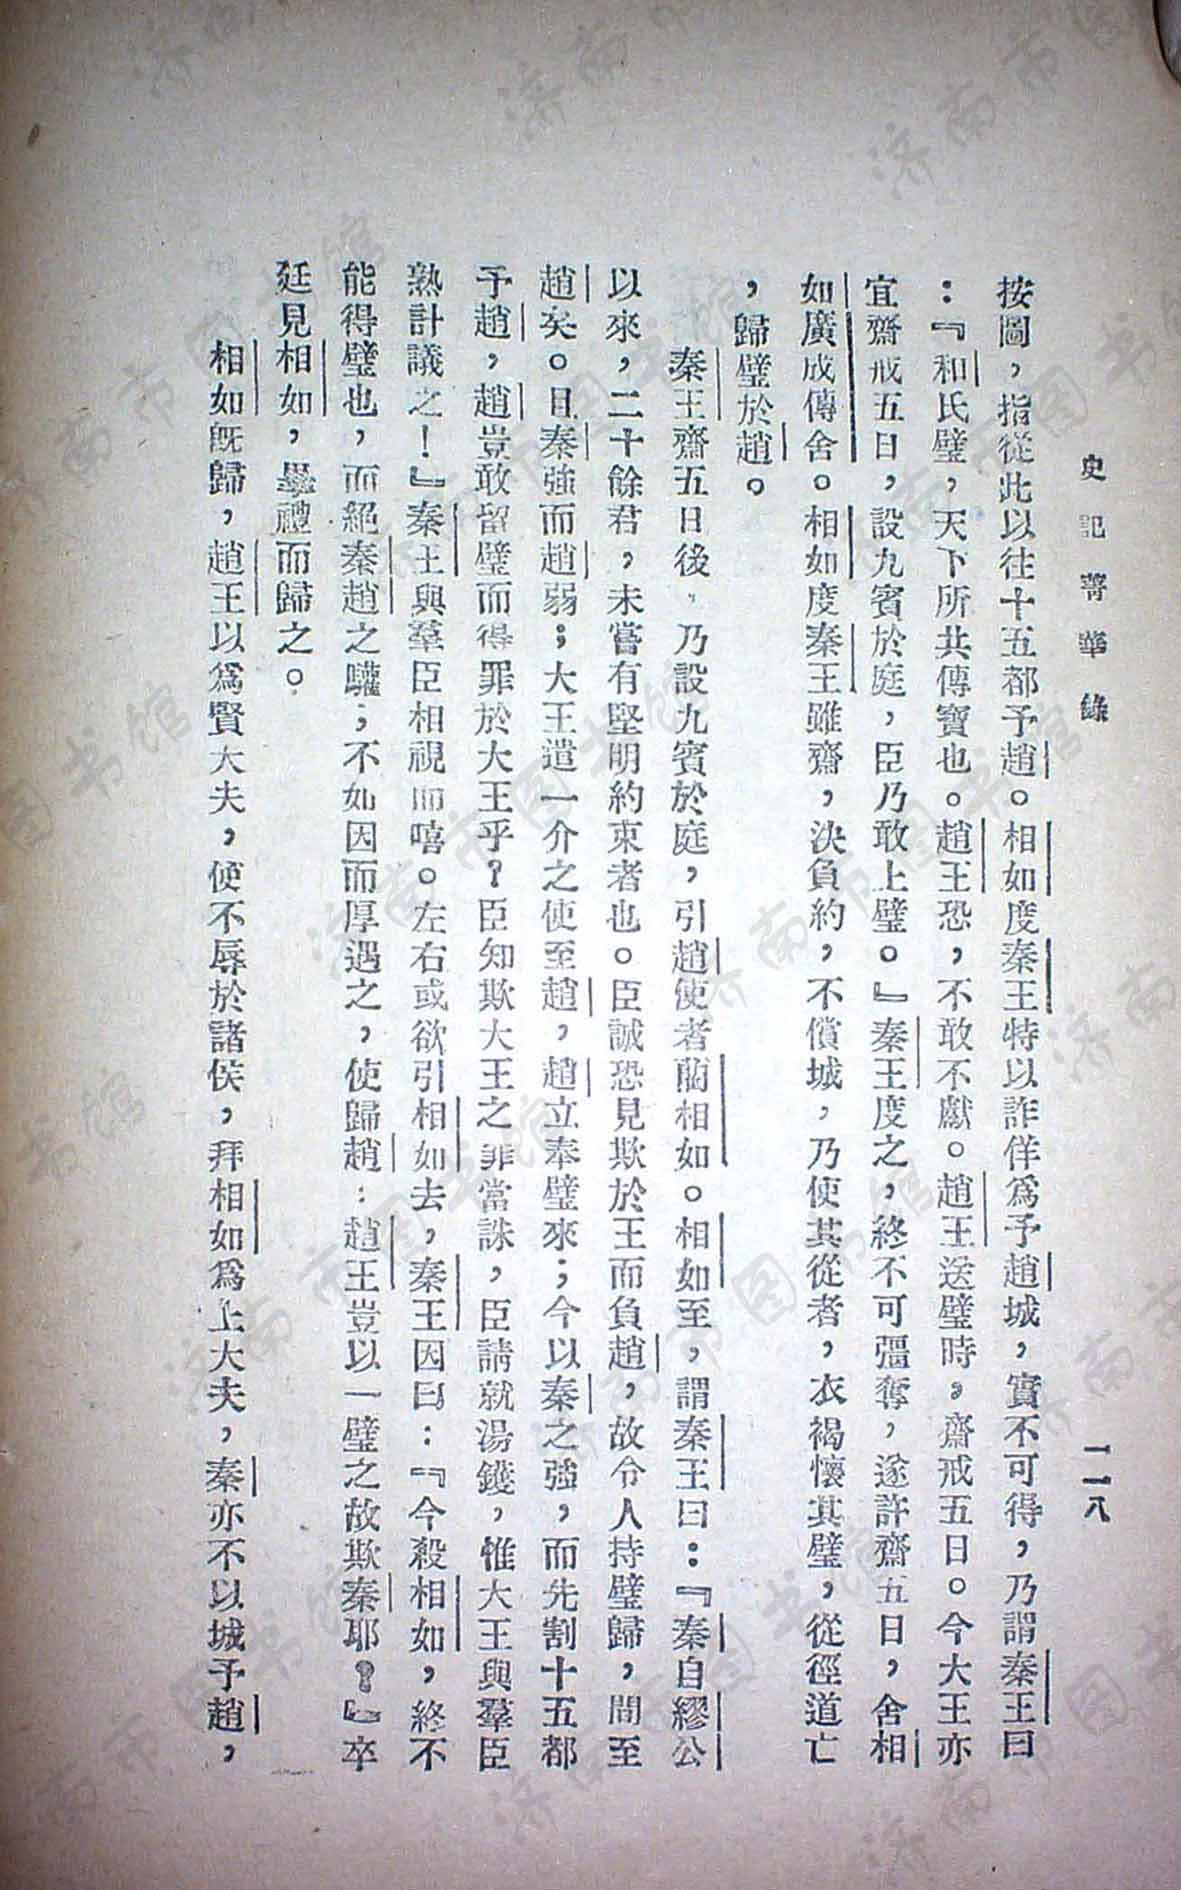 史記菁華錄
一一八
按圖，指從此以往十五都予趙。相如度秦王特以詐佯爲予趙城，實不可得，乃謂秦王曰
：『和氏璧，天下所共傳寶也。趙王恐，不敢不獻。趙王送璧時，齋戒五日。今大王亦
宜齋戒五日，設九賓於庭，臣乃敢上璧。』秦王度之，終不可彊奪，遂許齋五日，舍相
如廣成傳舍。相如度秦王雖齋，決負約，不償城，乃使其從者，衣褐懷其璧，從徑道亡
，歸璧於趙。
秦王齋五日後，乃設九賓於庭，引趙使者藺相如。相如至，謂秦王曰：『秦自繆公
以來，二十餘君，未嘗有堅明約束者也。臣誠恐見欺於王而負趙，故令人持璧歸，間至
趙矣。且秦強而趙弱；大王遣一介之使至趙，趙立奉璧來；今以秦之強，而先割十五都
予趙，趙豈敢留璧而得罪於大王乎？臣知欺大王之罪當誅，臣請就湯鑊，惟大王與羣臣
熟計議之！』秦王與羣臣相視而嘻。左右或欲引相如去，秦王因曰：『今殺相如，終不
能得璧也，而絕秦趙之驩；不如因而厚遇之，使歸趙：趙王豈以一璧之故欺秦耶？』卒
廷見相如，畢禮而歸之。
相如旣歸，趙王以爲賢大夫，使不辱於諸侯，拜相如爲上大夫，秦亦不以城予趙，
济南市图书馆